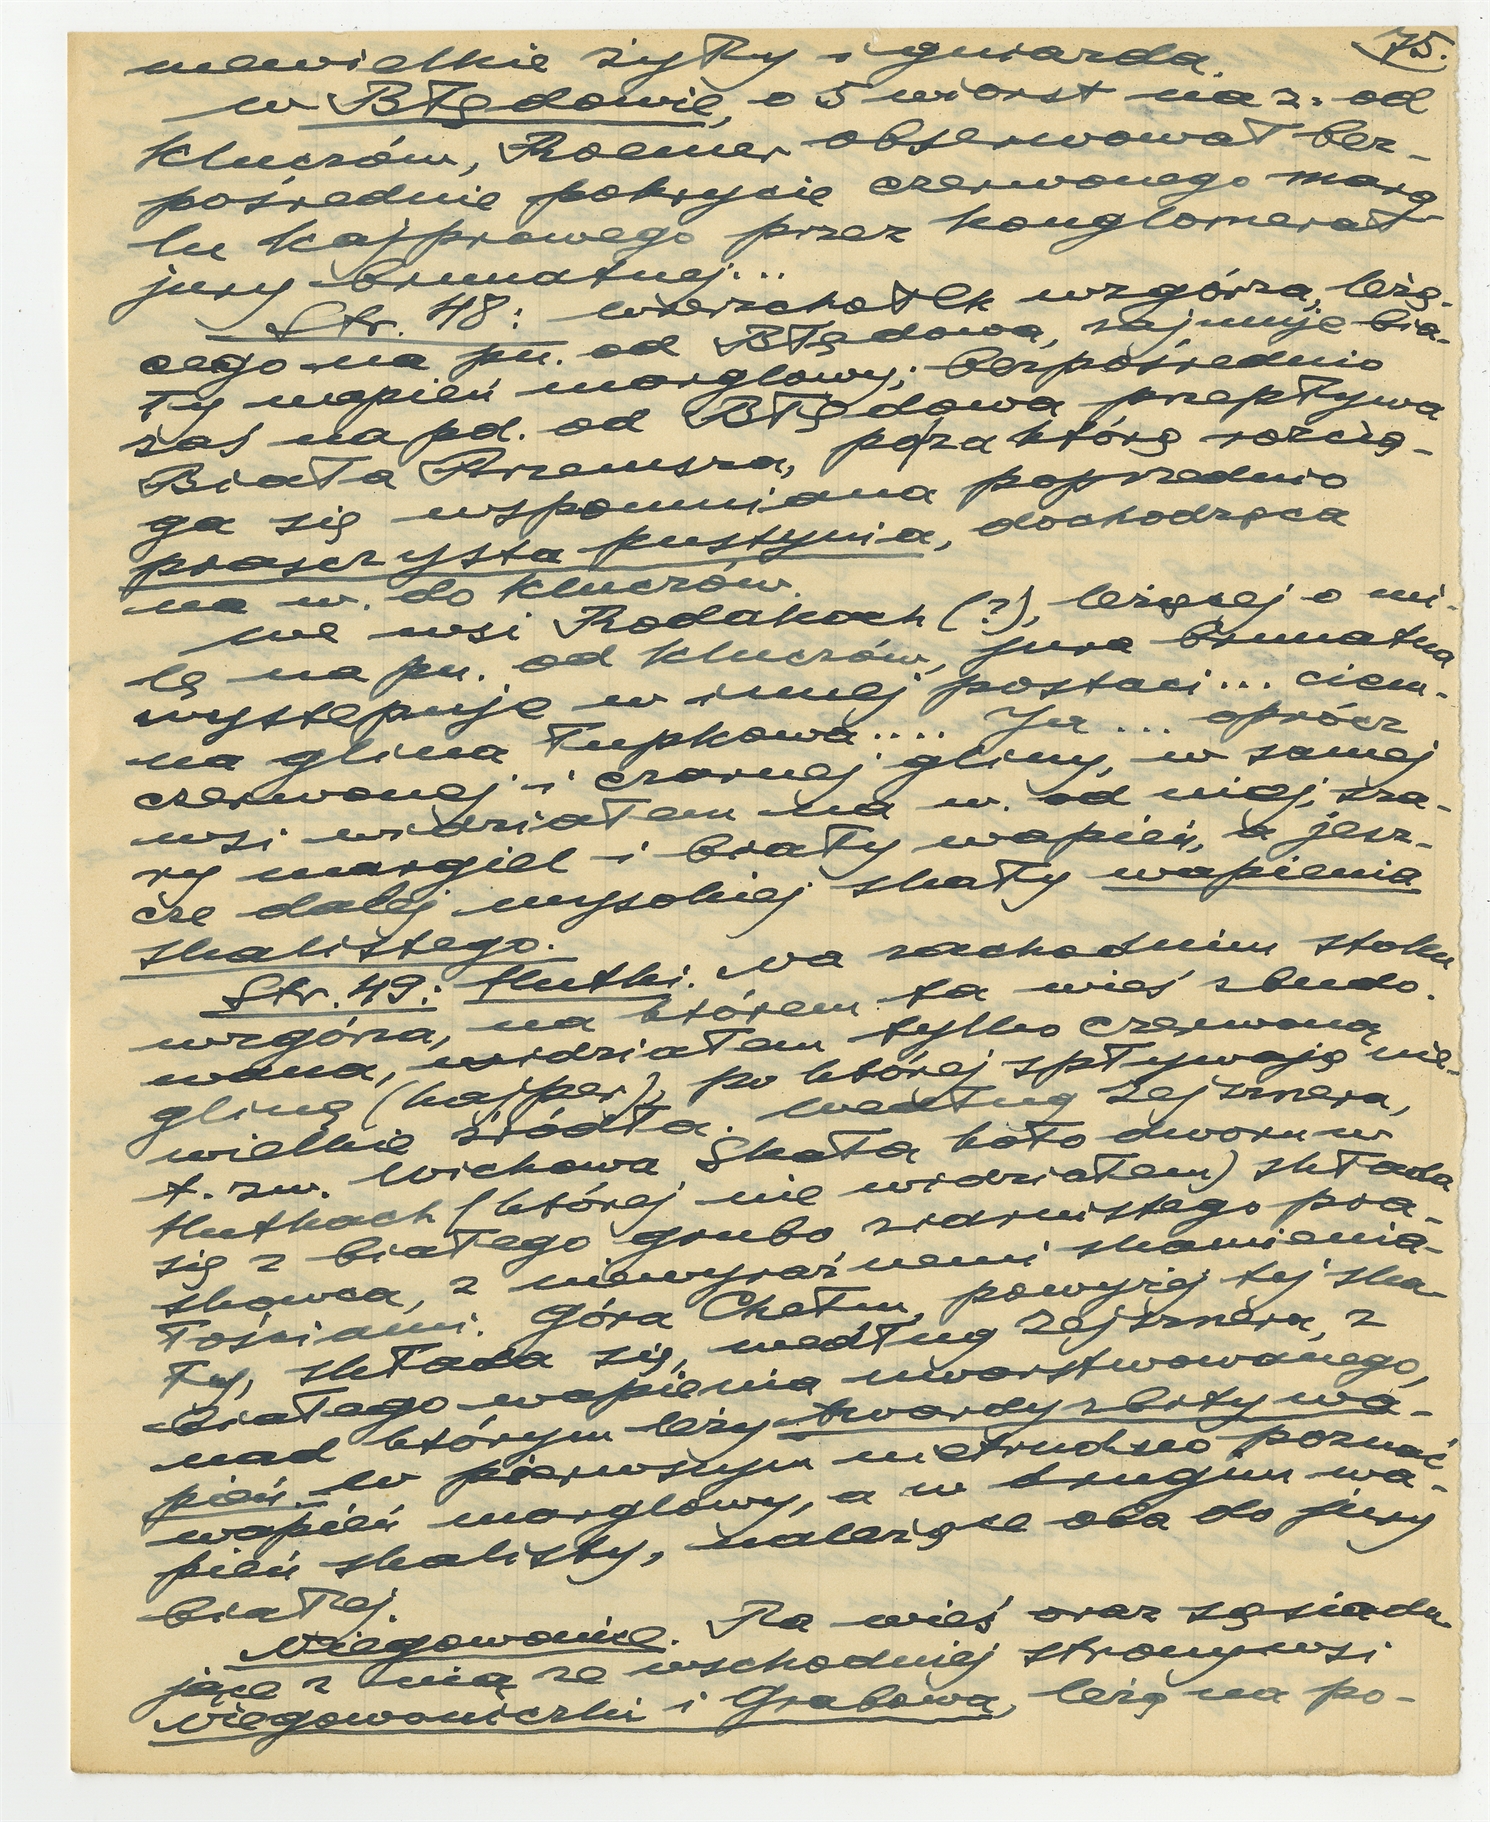 75.
niewielkie żyły i gniazda.
w Błędowie, o 5 wiorst na z. od
Kluczów, Roemer obserwował bez-
pośrednie pokrycie czerwonego marg-
lu kajprowego przez konglomerat
jury brunatnej...
Str. 48: Wierzchołek wzgórza, leżą-
cego na pn. od Błędowa, zajmuje bia-
ły wapień marglowy; bezpośrednio
zaś na pd. od Błędowa przepływa
Biała Przemsza, poza którą rozcią-
ga się wspomniana poprzednio
piaszczysta pustynia, dochodząca
na w. do Kluczów.
We wsi Rodakach (?), leżącej o mi-
lę na pn. od Kluczów, jura brunatna
występuje w innej postaci... ciem-
na glina łupkowa.... Tu ... oprócz
czerwonej i czarnej gliny, w samej
wsi widziałem na w. od niej, sza-
ry margiel i biały wapień, a jesz-
cze dalej wysokiej skały wapienia
skalistego.
Str. 49: Hutki. Na zachodnim stoku
wzgórza, na którem ta wieś zbudo-
wana, widziałem tylko czerwoną
glinę (kajper), po której spływają nie-
wielkie źródła. Według Zejsznera,
t. zw. Wichowa Skała koło dworu w
Hutkach (której nie widziałem) składa
się z białego grubo ziarnistego pia-
skowca, z niewyraźnemi skamienia-
łościami. Góra Chełm, powyżej tej ska-
ły, składa się, według Zejsznera, z
białego wapienia uwarstwowanego,
nad którym leży twardy zbity wa-
pień. W pierwszym nietrudno poznać
wapień marglowy, a w drugim wa-
pień skalisty, należące oba do jury
białej.
Niegowonice. Ta wieś oraz sąsiadu-
jące z nią ze wschodniej strony wsi
Niegowoniczki i Grabowa, leżą na po-